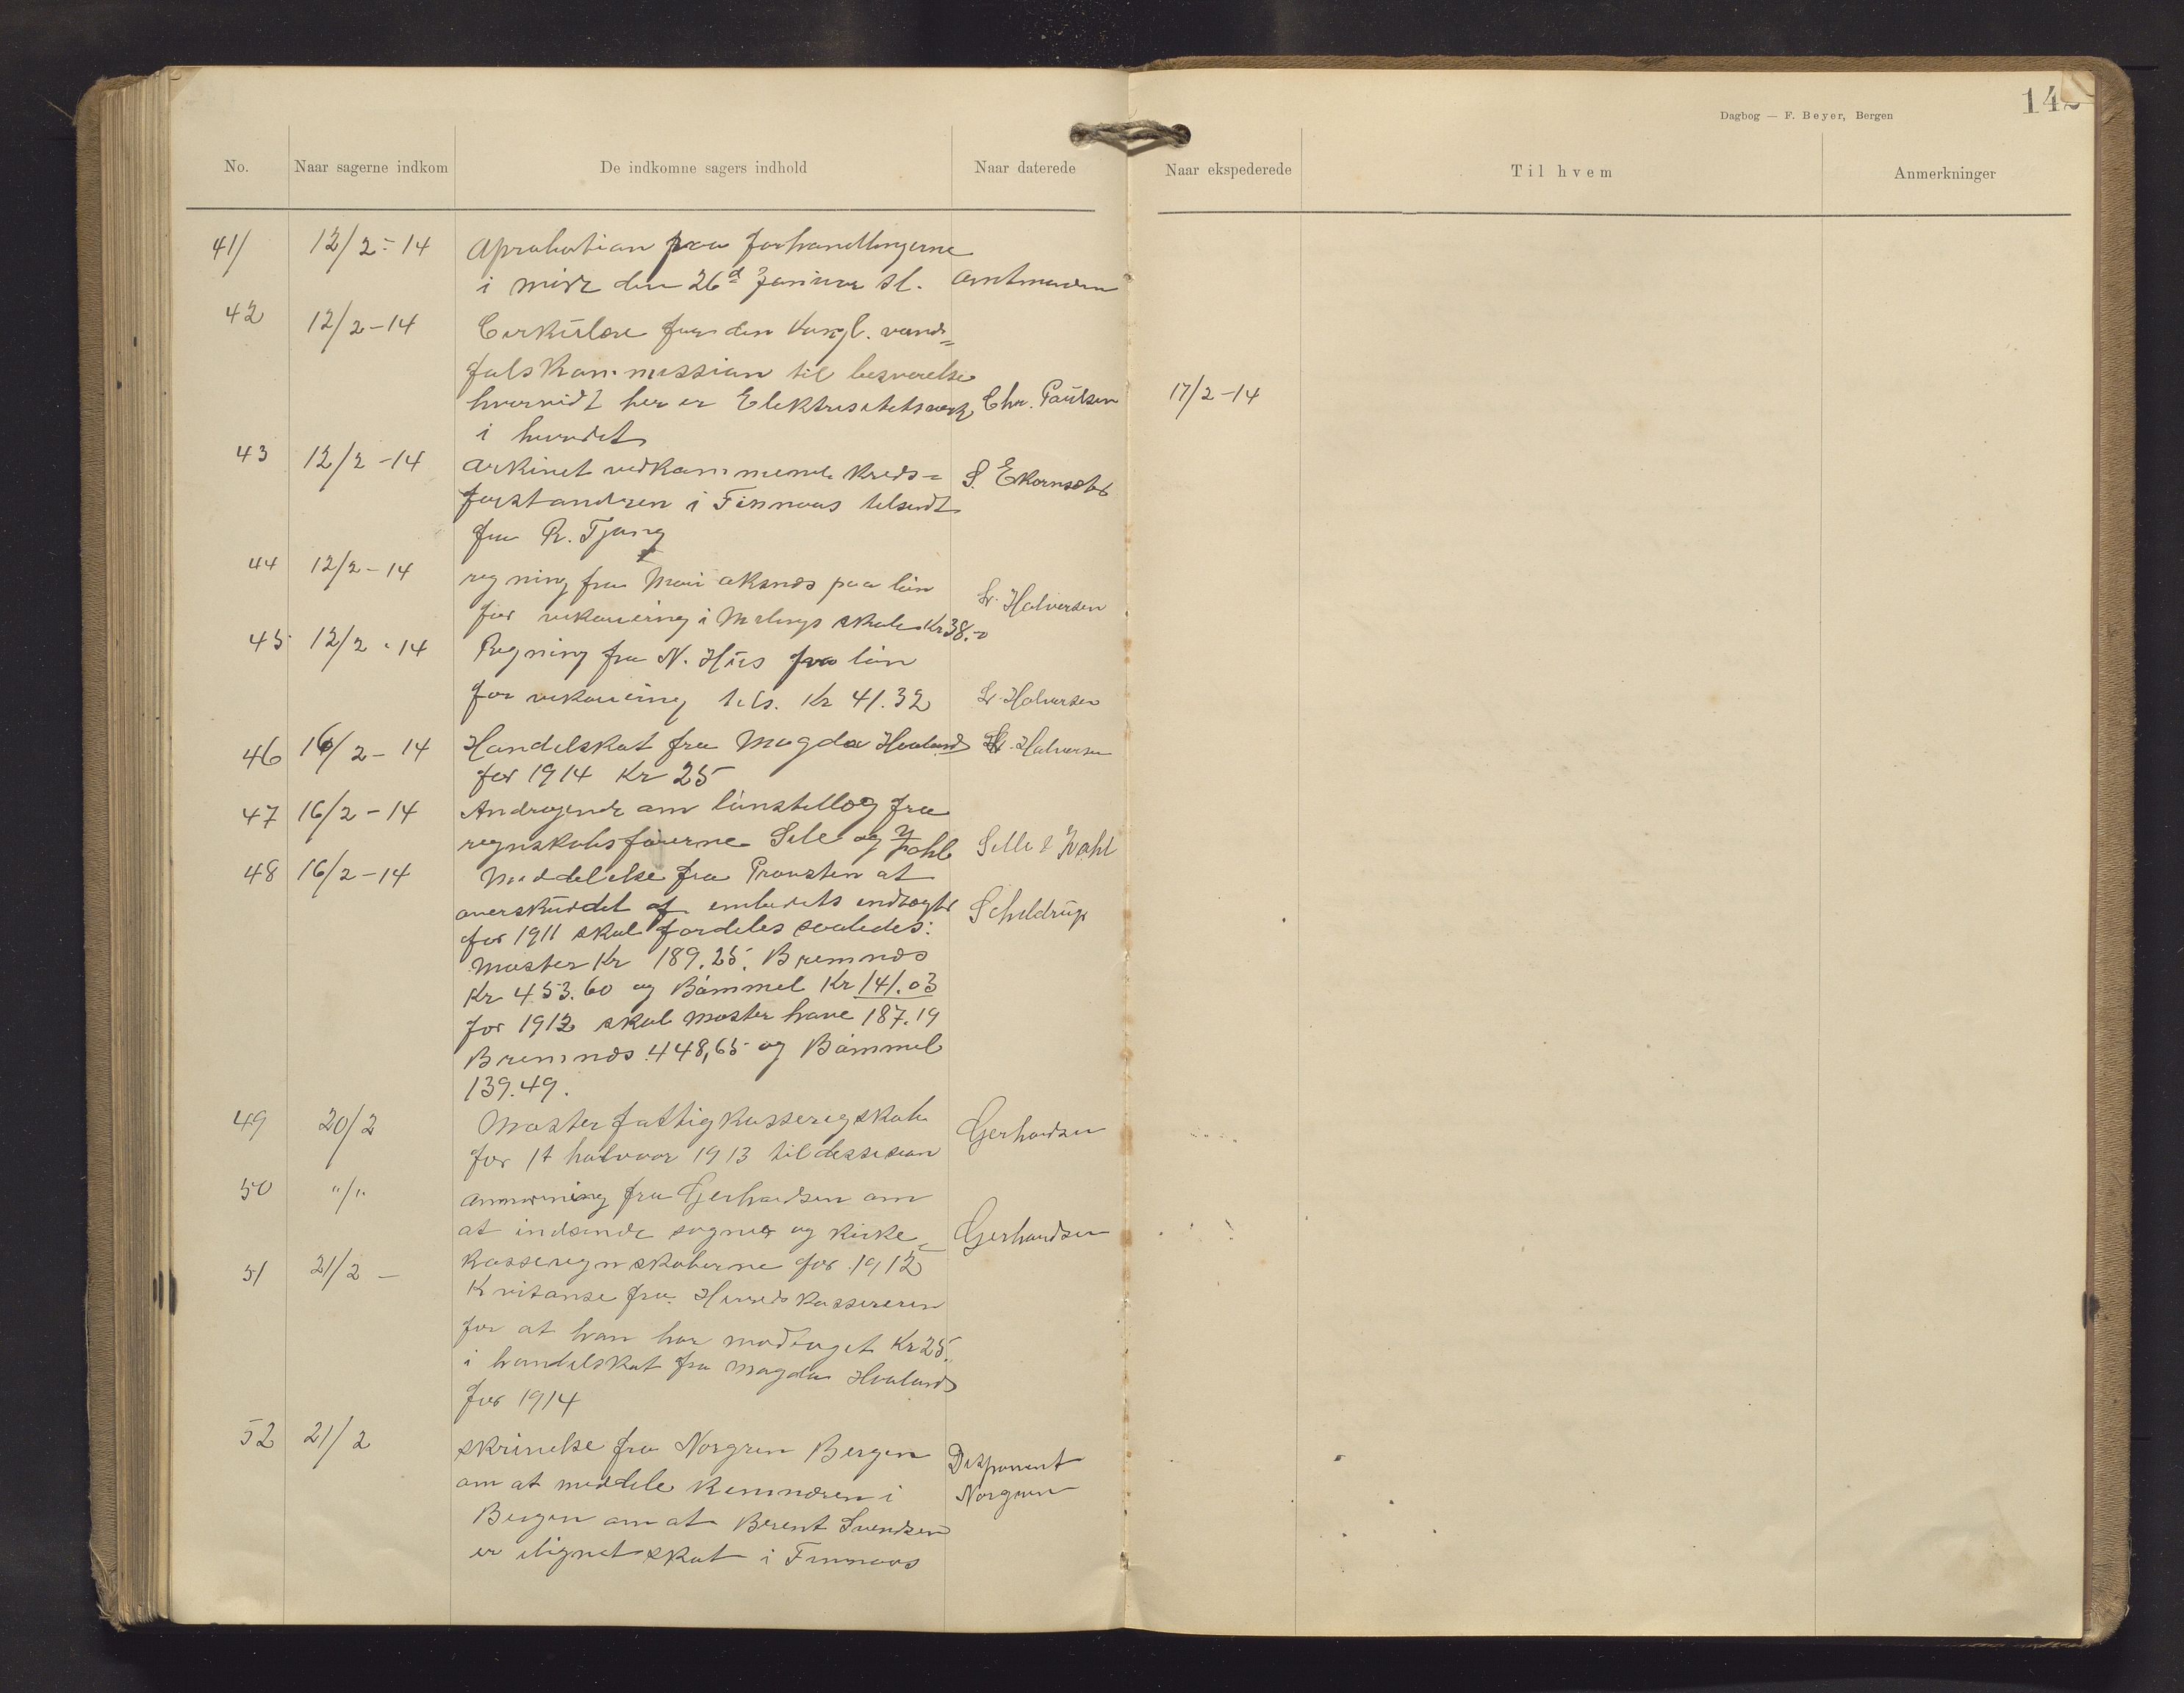 142
Dagbog — F. Beyer, Bergen
No. Naar sagerne indkom De indkomne sagers indhold Naar daterede Naar ekspederede Til hvem Anmerkninger
41/ 12/2-14 Aprobation paa forhandlingerne
i möde den 26d Januar sl. Amtmanden
42 12/2-14 Cirkülære fra den Kongl. vand=
falskommission til besvarelse
hvorvidt her er Elektrisitetsverk Chr. Paülsen 17/2-14
i herredet
43 12/2-14 Arkivet vedkommende Kreds=
forstandren i Finnaas tilsendt S. Ekornsæter
fra R. Tjong
44 12/2-14 regning fra Mari aksnes paa lön
for vikariering i Melings skole Kr 38.- L. Halversen
45 12/2-14 Regning fra N. Hüs paa lön
for vikariering Kr 41.32 L. Halversen
46 16/2-14 Handelskat fra Magda Hovland L. Halversen
for 1914 Kr 25
47 16/2-14 Andragende om lönstillæg fra
regnskabsförerne Sele og Dahl Selle & Dahl
48 16/2-14 Meddelelse fra Provsten at
overskuddet af embedets indtægter Scheldrüp
for 1911 skal fordeles saaledes:
Moster Kr 189.25. Bremnes
Kr 453.60 og Bömmel Kr 141.03
for 1912 skal Moster have 187.19
Bremnes 448,65 og Bömmel
139.49.
49 20/2 Moster fattigkasseregskab
for 1t halvaar 1913 til dessision Gerhardsen
50 "/" Anmodning fra Gerhardsen om
at indsende sogne og kirke= Gerhardsen
kasseregnskaberne for 1912
51 21/2 - Kvitanse fra Herredskassereren
for at han har modtaget Kr 25.
i handelskat fra Magda Hovland
for 1914
52 21/2 skrivelse fra Norgren Bergen Disponent
om at meddele Kemneren i Norgren
Bergen om at Berent Svendsen
er ilignet skat i Finnaas